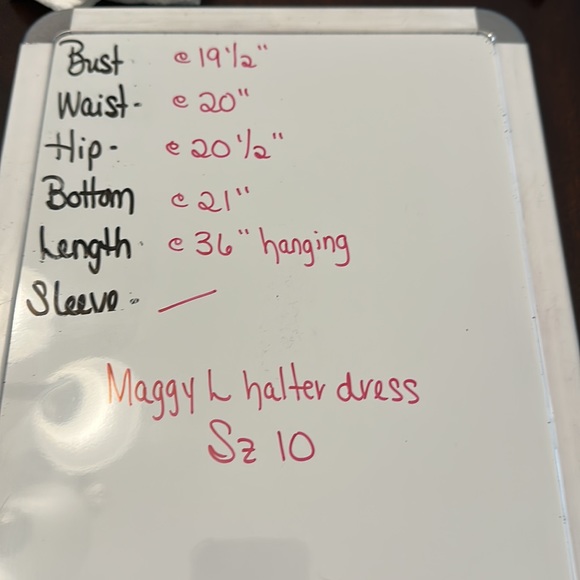 Bust e 19 1/2"
Waist- e 20"
Hip- e 20 1/2"
Bottom e 21"
Length- e 36" hanging
Sleeve- —
Maggy L halter dress
Sz 10